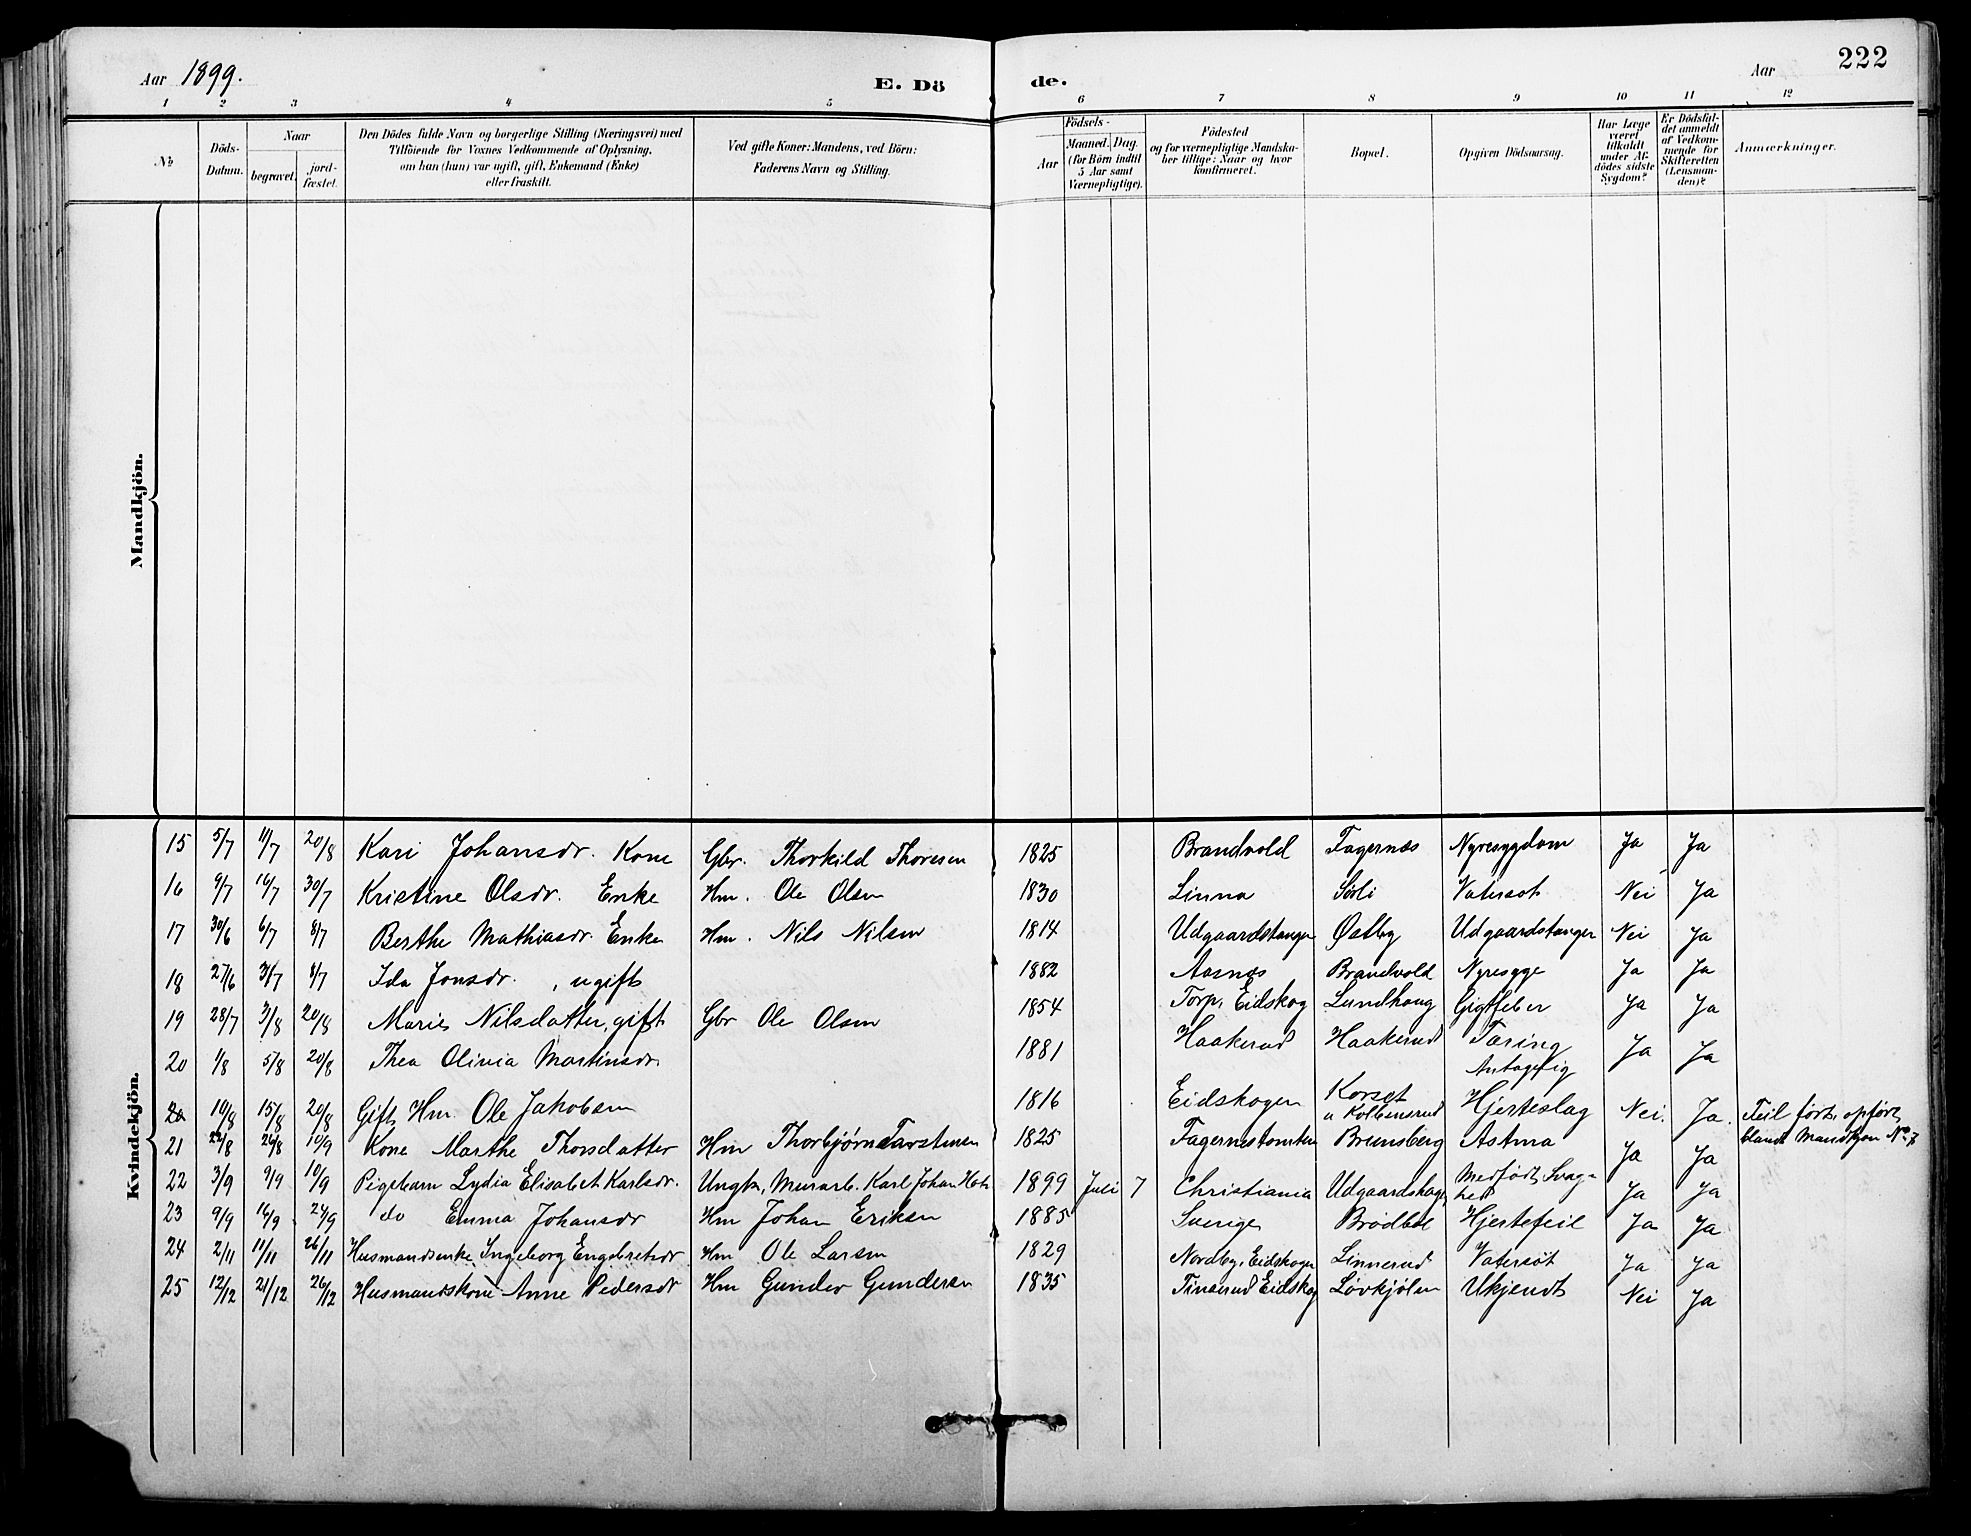 Aar 1899.
E. Dö
de.
Aar
222
1 2 3 4 5 6 7 8 9 10 11 12
No
Döds-Datum.
Naar
begravet.
jord-fæstet.
Den Dödes fulde Navn og borgerlige Stilling (Næringsvei) med
Tilföiende for Voxnes Vedkommende af Oplysning,
om han (hun) var ugift, gift, Enkemand (Enke)
eller fraskilt.
Ved gifte Koner: Mandens, ved Börn:
Faderens Navn og Stilling.
Födsels-
Aar
Maaned. Dag.
(for Börn indtil
5 Aar samt
Værnepligtige).
Födested
og for værnepligtige Mandska-
ber tillige: Naar og hvor
konfirmeret.
Bopæl.
Opgiven Dödsaarsag.
Har Læge
været
tilkaldt
under Af-
dödes sidste
Sygdom?
Er Dödsfal-
det anmeldt
af Vedkom-
mende for
Skifteretten
(Lensman-
den)?
Anmærkninger.
Mandkjön.
Kvindekjön.
15 5/7 11/7 20/8 Kari Johansdr. Kone Gbr. Thorkild Thoresen 1825 Brandvold Fagernæs Nyresygdom Ja Ja
16 9/7 16/7 30/7 Kristine Olsdr. Enke Hm. Ole Olsen 1830 Linna Sørli Vatersot Nei Ja
17 30/6 6/7 8/7 Berthe Mathiasdr. Enke Hm. Nils Nilsen 1814 Udgaardstangen Østby Udgaardstanger Nei Ja
18 27/6 3/7 8/7 Ida Jonsdr. , ugift 1882 Aasnæs Brandvold Nyresyge Ja Ja
19 28/7 3/8 20/8 Marie Nilsdatter, gift Gbr Ole Olsen 1854 Torp, Eidskog Lundhaug Gigtfeber Ja Ja
20 1/8 5/8 20/8 Thea Olivia Martinsdr. 1881 Haakerud Haakerud Tæring Ja Ja
Antagelig
20 10/8 15/8 20/8 Gift, Hm. Ole Jakobsen 1816 Eidskogen Korset Hjerteslag Nei. Ja. Feil ført, opført
u Kolbensrud
blandt Mandkjøn No 7
21 22/8 26/8 10/9 Kone Marthe Thorsdatter Hm Thorbjørn Torstensen 1825 Fagernestomten Bremsberg Astma Ja Ja
22 3/9 9/9 10/9 Pigebarn Lydia Elisabet Karlsdr. Ungk., Murarb. Karl Johan 1899 Juli 7 Christiania Medfødt Svag-
hed Ja Ja
23 9/9 16/9 24/9 do Emma Johansdr Hm Johan Eriksen 1885 Sverige Brødbøl Hjertefeil Ja Ja
24 2/11 11/11 26/11 Husmandsenke Ingeborg Engebretsdr Hm Ole Larsen 1829 Nordby, Eidskogen Linnerud Vatersot Ja Ja
25 12/12 21/12 26/12 Husmandskone Anne Pedersdr Hm Gunder Gundersen 1835 Tinserud Eidskog Løvkjølen Ukjendt Nei Ja